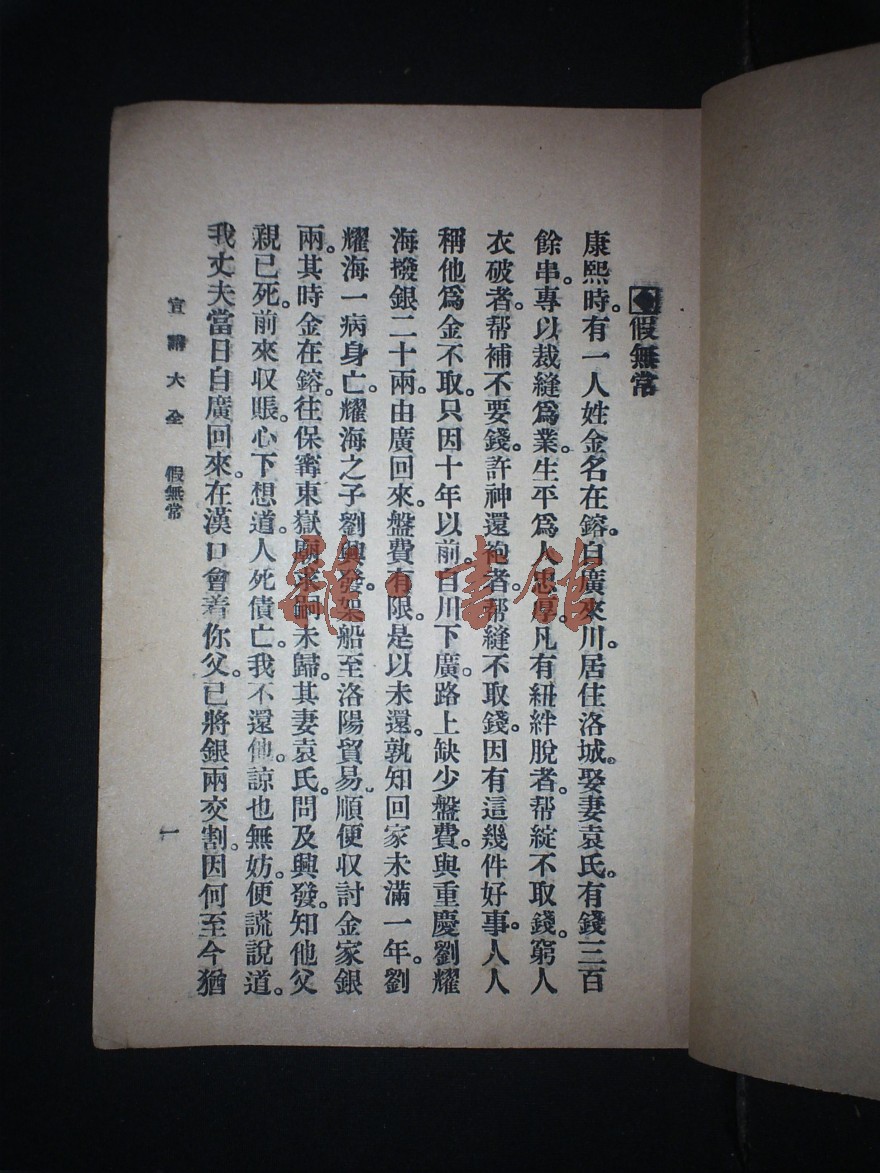 ◆假無常
康熙時。有一人姓金名在鎔。自廣來川。居住洛城。娶妻袁氏。有錢三百
餘串。專以裁縫爲業。生平爲人忠厚。凡有紐絆脫者。帮綻不取錢。窮人
衣破者。帮補不要錢。許神還袍者。帮縫不取錢。因有這幾件好事。人人
稱他爲金不取。只因十年以前。自川下廣。路上缺少盤費。與重慶劉耀
海撥銀二十兩。由廣回來。盤費有限。是以未還。孰知回家未滿一年。劉
耀海一病身亡。耀海之子劉興發。架船至洛陽貿易。順便収討金家銀
兩。其時金在鎔。往保寗東嶽廟求嗣未歸。其妻袁氏。問及興發。知他父
親已死。前來収賬。心下想道。人死債亡。我不還他。諒也無妨。便謊說道。
我丈夫當日自廣回來。在漢口會着你父。已將銀兩交割。因何至今猶
宣講大全 假無常 一
雜·書館